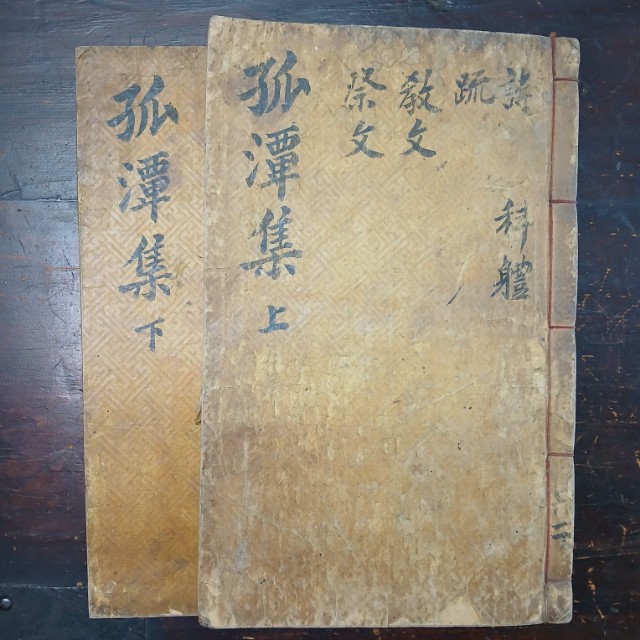 詩 科體
疏
教文
祭文
孤潭集 上
二
孤潭集 下